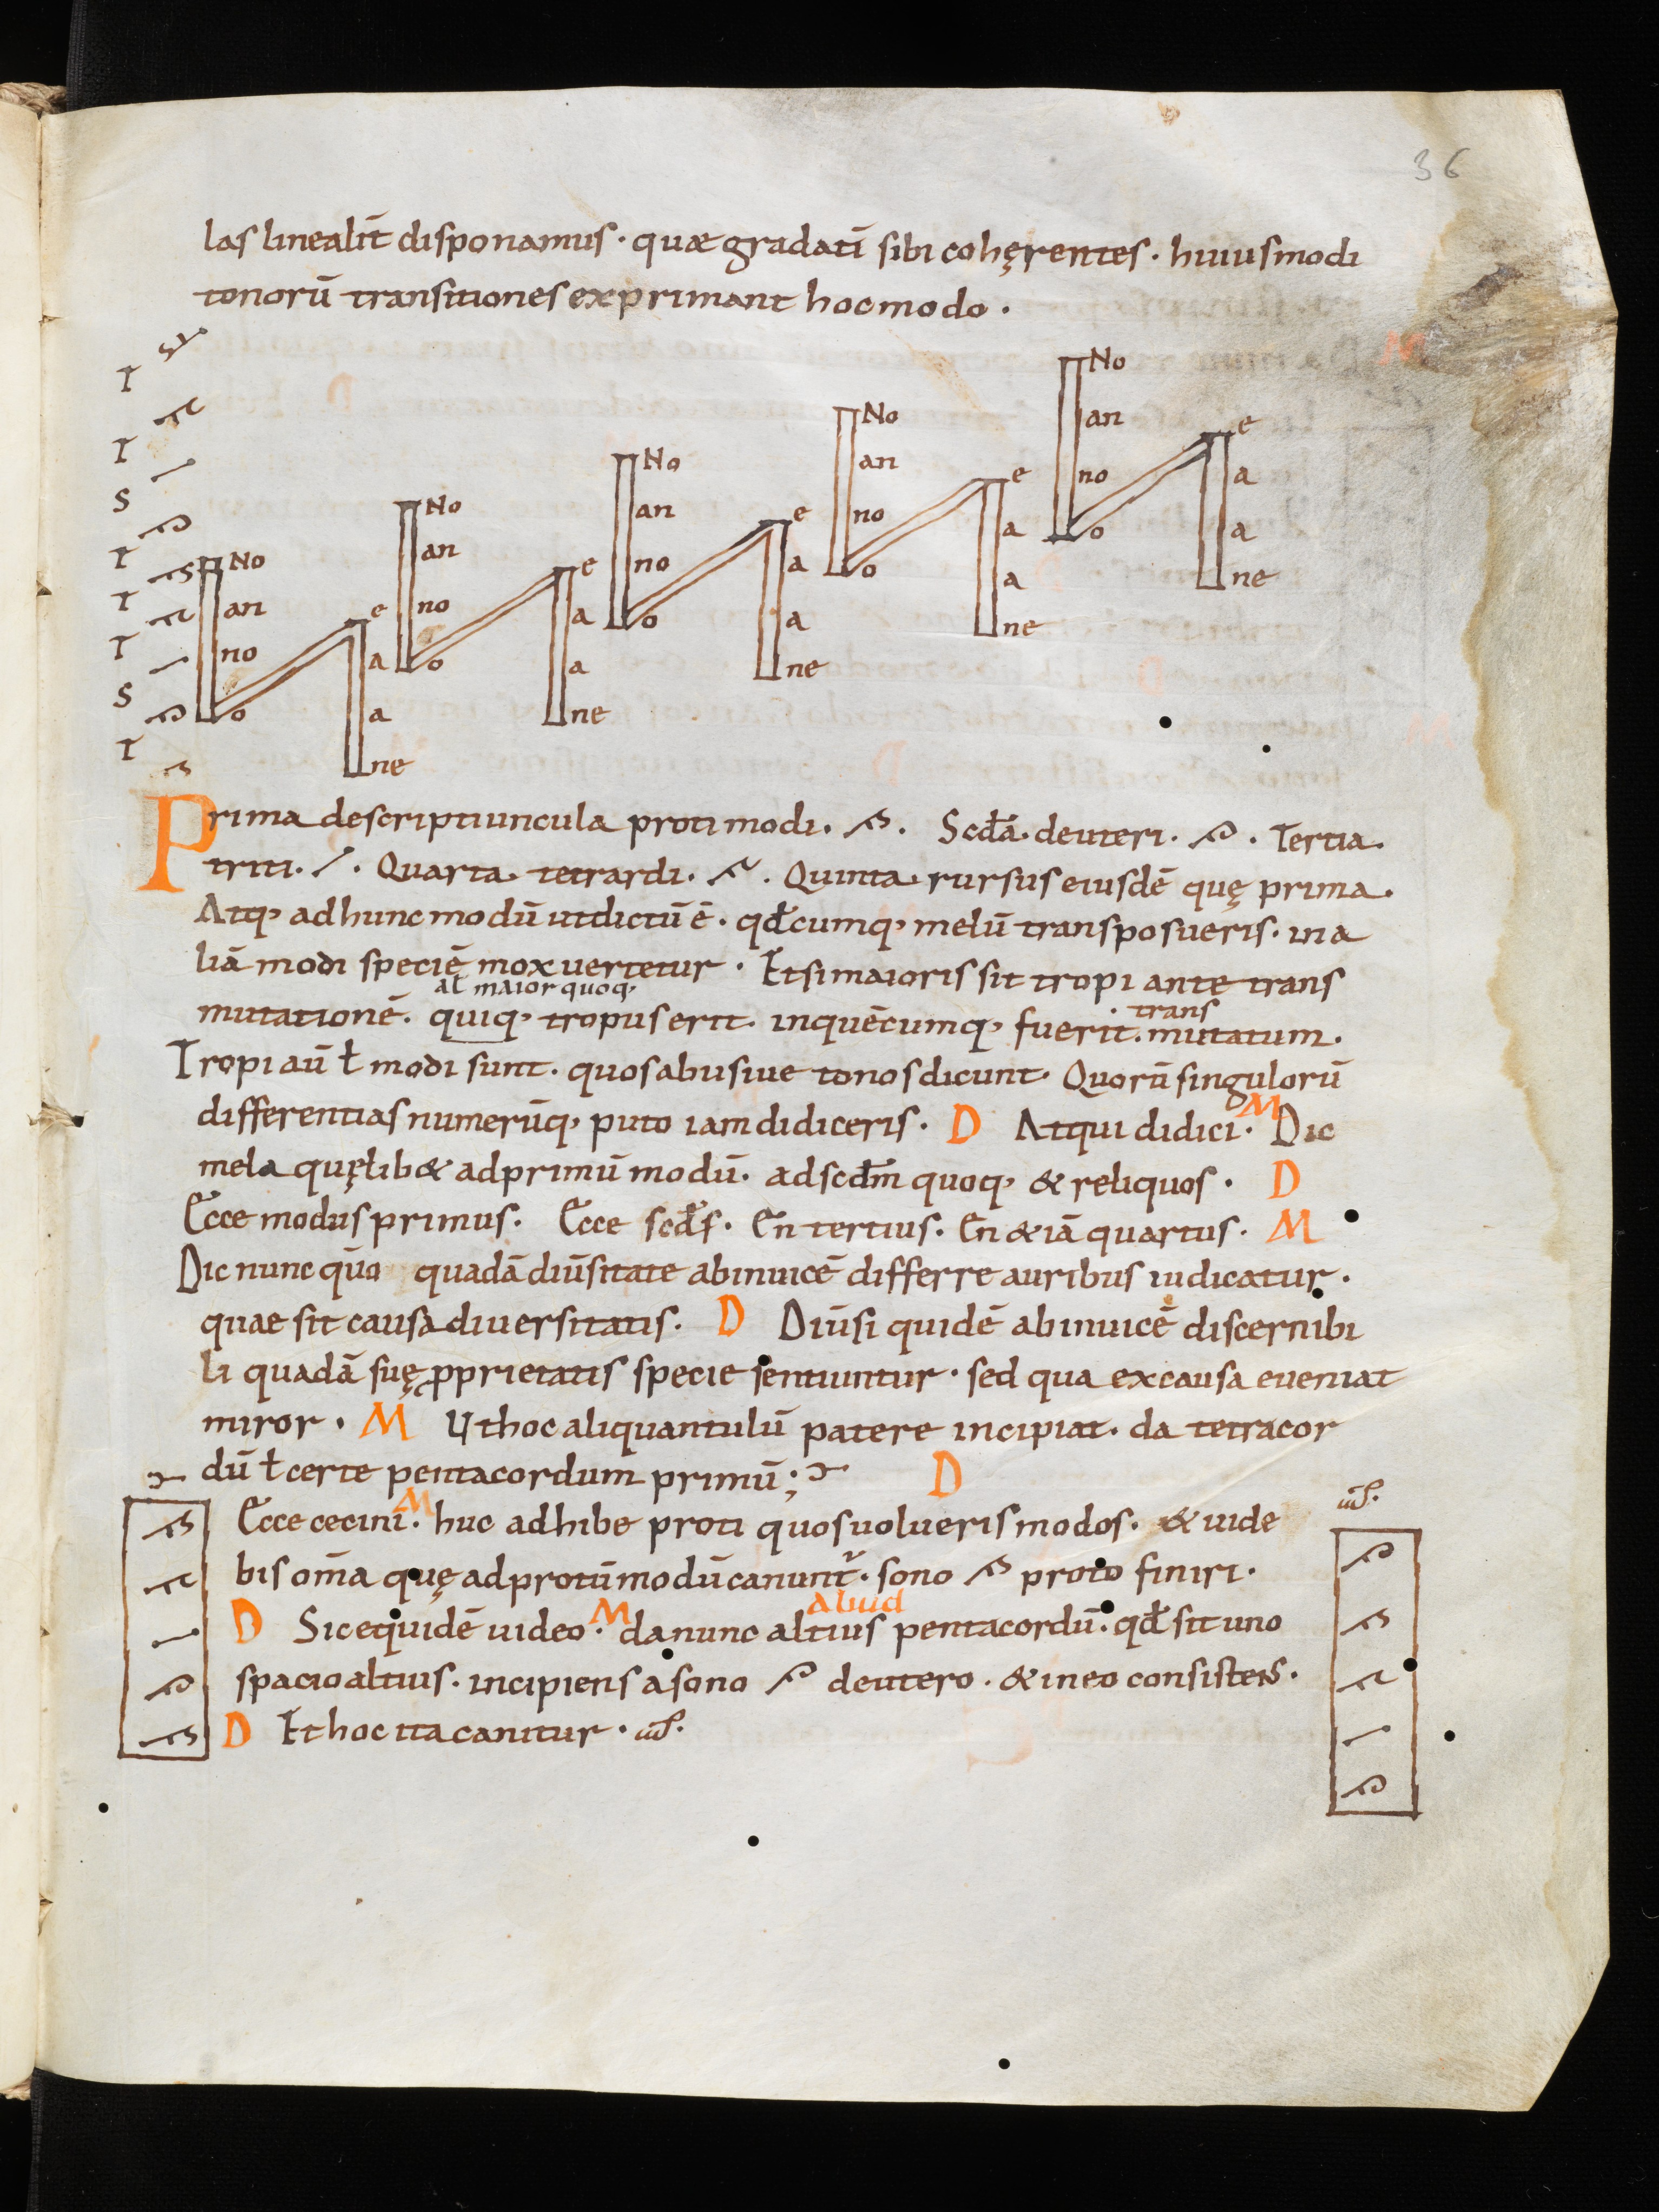 36
las linealit̄ disponamus · quae gradatī sibi cohęrentes · huiusmodi
tonorū transitiones exprimant hoc modo ·
T
T
S
T
T
T
S
T
No an no o e a a ne
No an no o e a a ne
No an no o e a a ne
No an no o e a a ne
No an no o e a a ne
Prima descriptiuncula proti modi · Scd̄a · deuteri · Tertia ·
triti · Quarta · tetrardi · Quinta · rursus eiusdē quę prima ·
Atq, ad hunc modū ut dictū ē · qđcumq, melū transposueris · in a
liā modi speciē mox uertetur · Et si maioris sit tropi ante trans
al maior quoq,
mutationē · quiq, tropus erit · in quēcumq, fuerit · mutatum ·
trans
Tropi aū ł modi sunt · quos abusiue tonos dicunt · Quorū singulorū
differentias numerūq, puto iam didiceris · D Atqui didici · M Dic
mela quęlib& ad primū modū · ad scdm̄ quoq, & reliquos · D
Ecce modus primus · Ecce scd̄s · En tertius · En & iā quartus · M
Dic nunc qūo quadā diūsitate ab inuicē differre auribus iudicatur ·
quae sit causa diuersitatis · D Diūsi quidē ab inuicē discernibi
li quadā suę pprietatis specie sentiuntur · sed qua ex causa eueniat
miror · M Ut hoc aliquantulū patere incipiat · da tetracor
dū ł certe pentacordum primū; D
Ecce cecini · M huc adhibe proti quos uolueris modos · & uide
bis om̄a quę ad protū modū canunt᷑ · sono proto finiri ·
D Sic equidē uideo · M da nunc altius pentacordū · qđ sit uno
aliud
spacio altius · incipiens a sono deutero · & in eo consistens ·
D Et hoc ita canitur ·